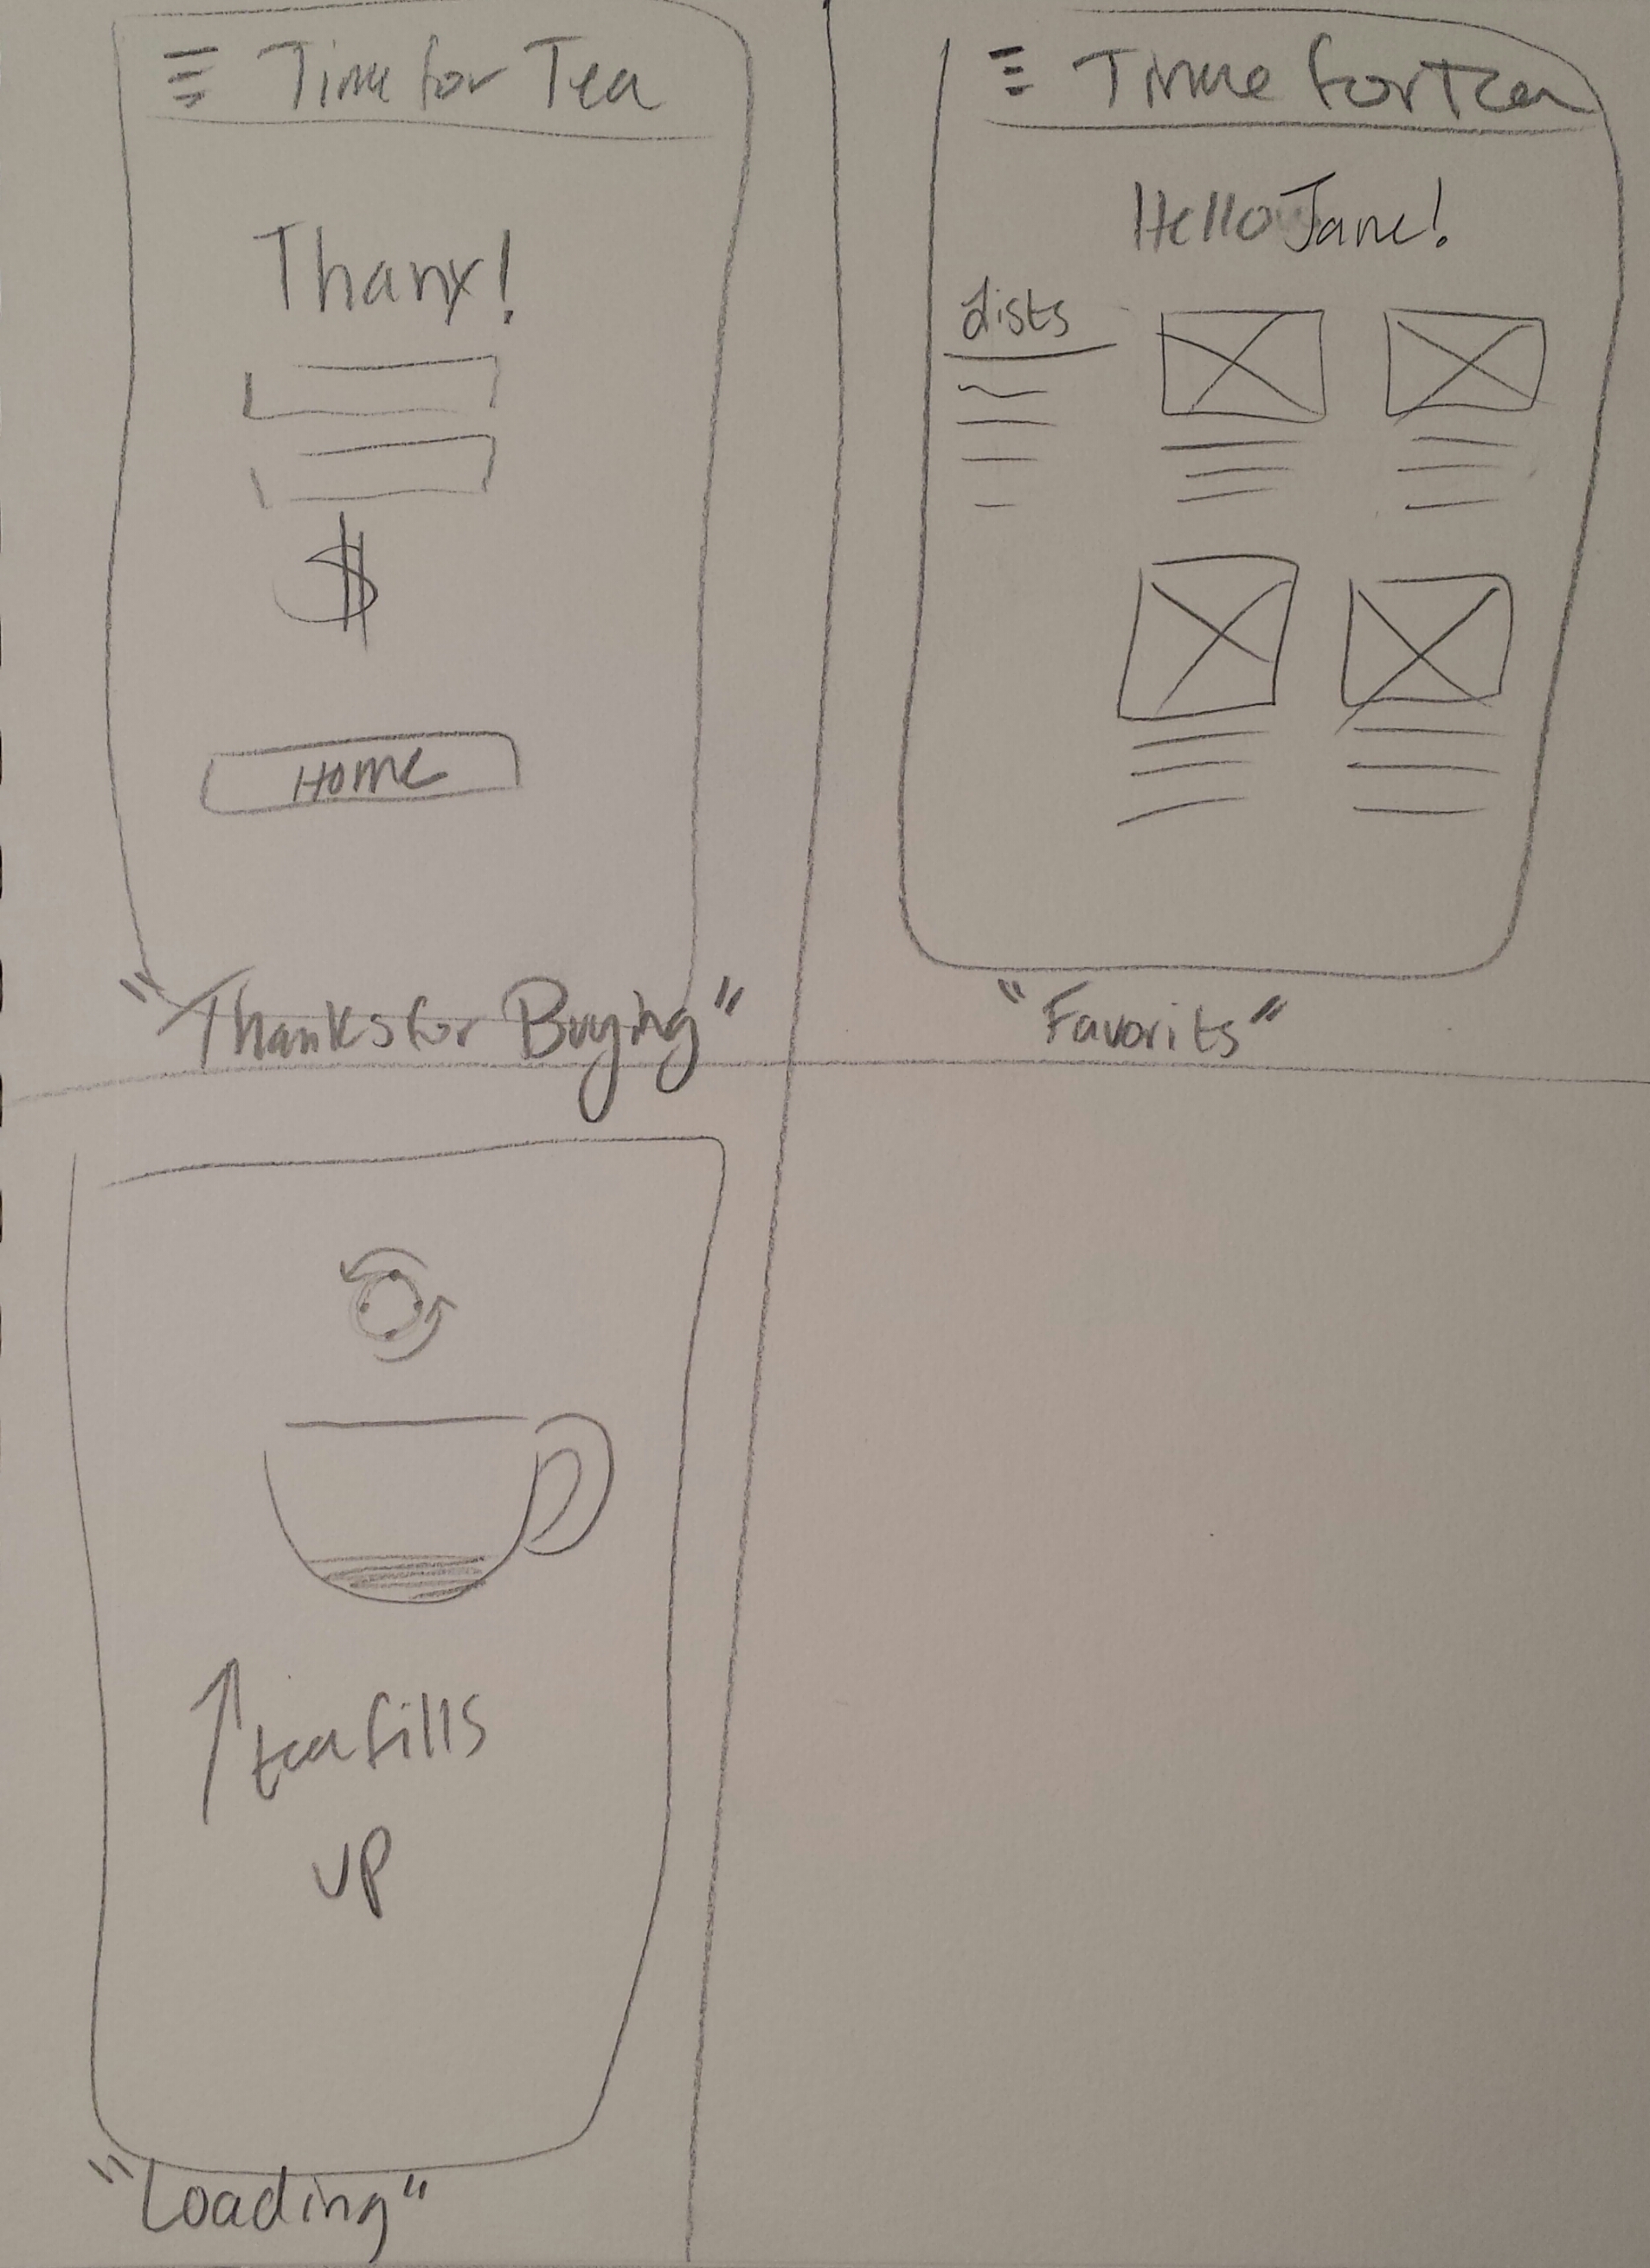 Time for Tea
Thanx!
$
HOME
"Thanks for Buying"
Time for Tea
Hello Jane!
Lists
"Favorits"
tea fills
UP
"Loading"